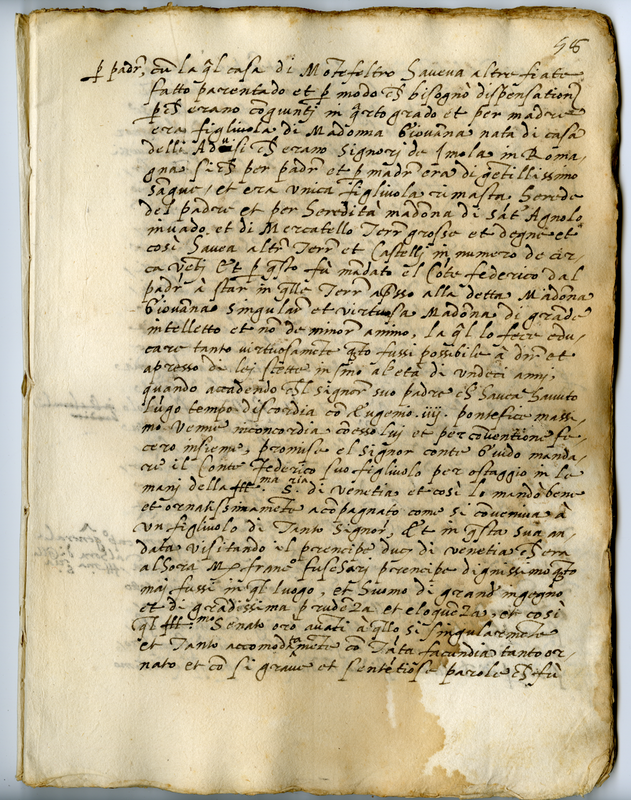 58
p padr, cū la q̄l casa di Mōtefeltro haveva altre fiate
fatto parentado et p modo ch bisognò dispensation
p ch erano cōgiunti in q̄rto grado et per madre
era figlivola di Madonna Giovana nata di casa
delli Adusi ch erano Signori de Imola in Roma,
gna si ch per padr et p madr era di gētillissimo
sāgue, et era unica figlivola rimasta herede
del padre et per heredità madōna di Sāt Agnolo
in vado et di Mercatello Terr grosse et degne et
così havea altr Terr et Castelli in numero de cir,
ca vēti Et p q̄sto fu mādato el Cōte federico dal
padr à star in q̄lle Terr apsso alla detta Madōna
Giovana singular et virtuosa Madōna di grāde
intelletto et nō de minor animo, la q̄l lo fece edu,
care tanto virtuosamēte q̄to fussi possibile à dir et
apresso de lei stette in sino al età di undeci anni,
quando accadendo ch'l signor suo padre ch havea havuto
lūgo tempo discordia cō Eugenio .iiij. pontefice mass:
mo venne in concordia cō esso lui et per cōventione fe,
cero insieme, promise el signor conte Guido manda,
re il Conte Federico suo figlivolo per ostaggio in le
mani della Ill.ma S.ria di Venetia et così lo mandò bene
et ornatissimamēte acōpagnato come si cōvenua à
un figlivolo di Tanto Signor, Et in q̄sta sua an,
data visitando il prencipe duce di venetia ch era
alhora M.r franc.o fuschari prencipe dignissimo q̄to
mai fussi in q̄l luogo, et huomo di grand ingegno
et di grādissima prudēza et eloquēza, et così
q̄l Ill.mo Senato orò avāti à q̄llo si singularmēte
et Tanto accomodatamēte cō Tāta facundia tanto or,
nato et cō si grave et sentētiose parole ch fù